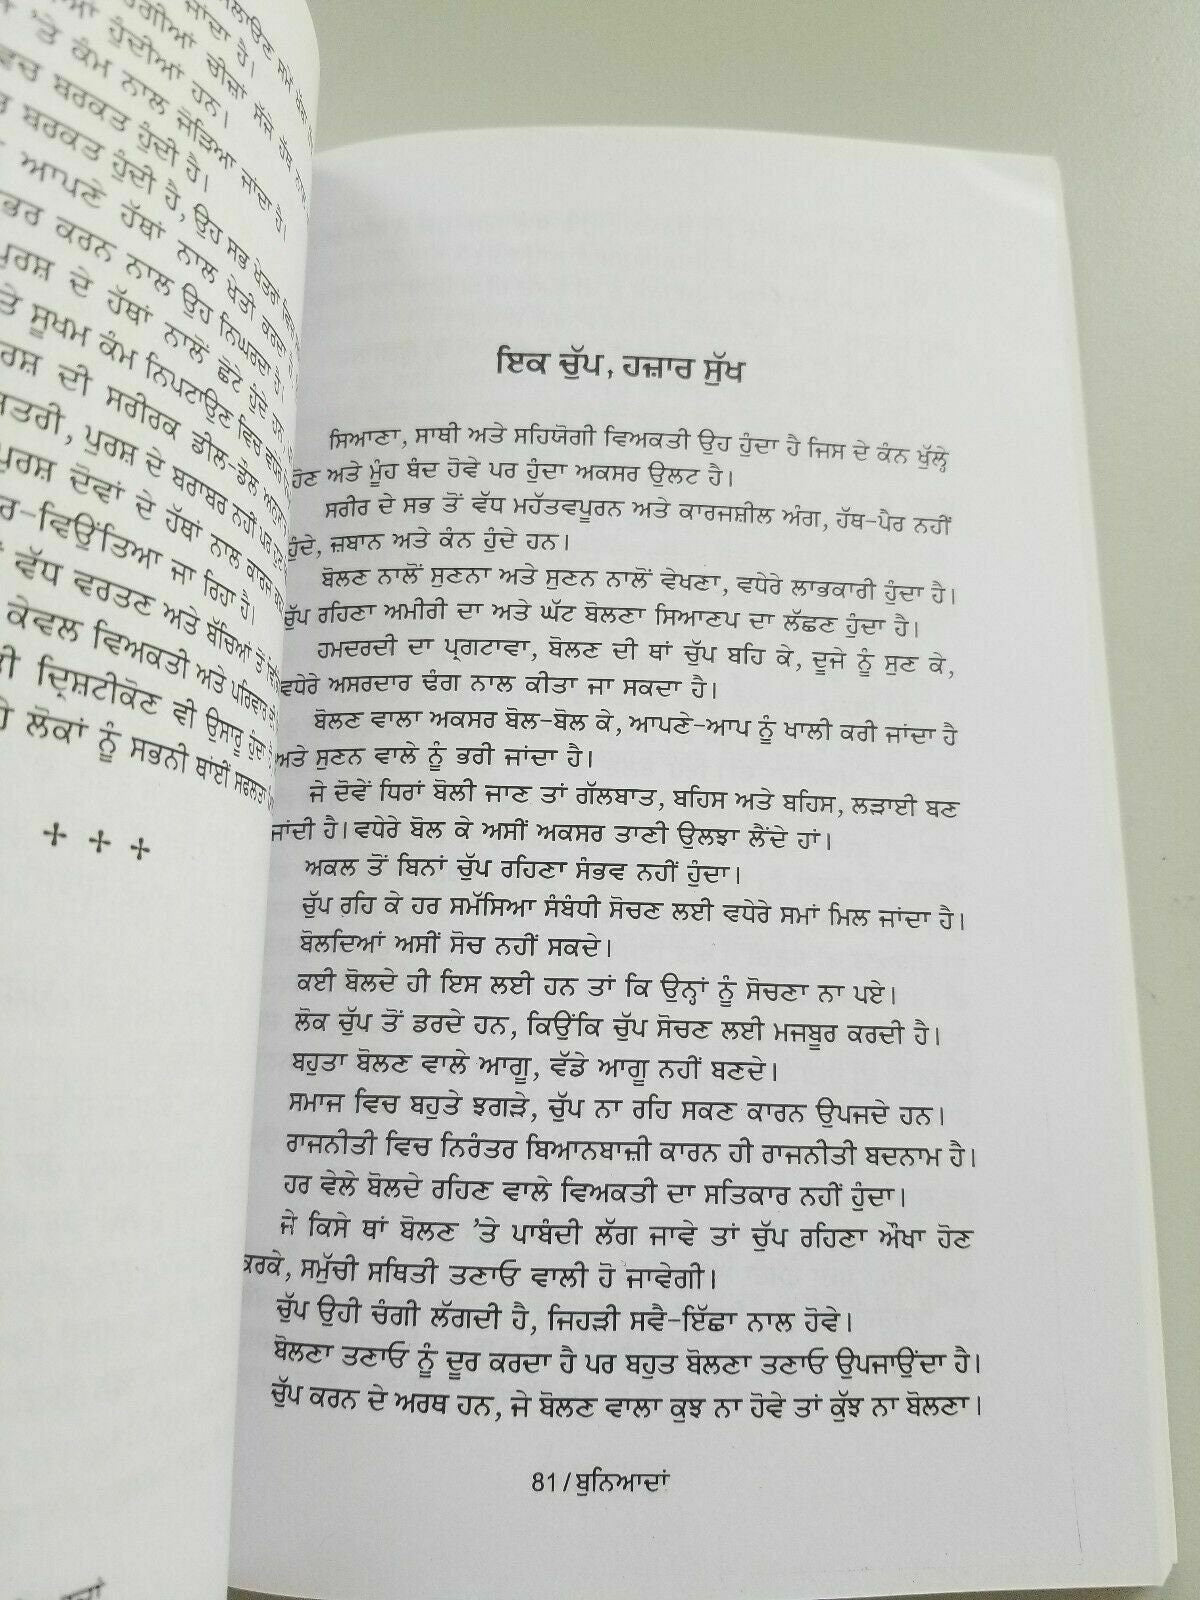 ਜਾਂਦਾ ਹੈ।
ਹੁੰਦੀਆਂ ਹਨ।
’ਤੇ ਕੰਮ ਨਾਲ ਜੋੜਿਆ ਜਾਂਦਾ ਹੈ।
ਬਰਕਤ ਹੁੰਦੀ ਹੈ।
ਬਰਕਤ ਹੁੰਦੀ ਹੈ, ਉਹ ਸਭ ਖੇਤਰਾਂ
ਆਪਣੇ ਹੱਥਾਂ ਨਾਲ ਖੇਤੀ ਕਰਦਾ
ਕਰਨ ਨਾਲ ਉਹ ਨਿਘਰਦਾ ਹੈ।
ਦੇ ਹੱਥਾਂ ਨਾਲੋਂ ਛੋਟੇ ਹੁੰਦੇ ਹਨ
ਸੂਖਮ ਕੰਮ ਨਿਪਟਾਉਣ ਵਿਚ
ਦੀ ਸਰੀਰਕ ਡੀਲ-ਡੋਲ
ਪੁਰਸ਼ ਦੇ ਬਰਾਬਰ ਨਹੀਂ ਪਰ
ਪੁਰਸ਼ ਦੋਵਾਂ ਦੇ ਹੱਥਾਂ ਨਾਲ ਕਾਰਜ
ਵਿਉਂਤਿਆ ਜਾ ਰਿਹਾ ਹੈ।
ਵੱਧ ਵਰਤਣ ਅਤੇ ਬੱਚਿਆਂ ਤੋਂ
ਕੇਵਲ ਵਿਅਕਤੀ ਅਤੇ ਪਰਿਵਾਰ
ਦ੍ਰਿਸ਼ਟੀਕੋਣ ਵੀ ਉਸਾਰੂ ਹੁੰਦਾ
ਲੋਕਾਂ ਨੂੰ ਸਭਨੀ ਥਾਂਈਂ ਸਫਲਤਾ
ਇਕ ਚੁੱਪ, ਹਜ਼ਾਰ ਸੁੱਖ
ਸਿਆਣਾ, ਸਾਥੀ ਅਤੇ ਸਹਿਯੋਗੀ ਵਿਅਕਤੀ ਉਹ ਹੁੰਦਾ ਹੈ ਜਿਸ ਦੇ ਕੰਨ ਖੁੱਲ੍ਹੇ
ਹੋਣ ਅਤੇ ਮੂੰਹ ਬੰਦ ਹੋਵੇ ਪਰ ਹੁੰਦਾ ਅਕਸਰ ਉਲਟ ਹੈ।
ਸਰੀਰ ਦੇ ਸਭ ਤੋਂ ਵੱਧ ਮਹੱਤਵਪੂਰਨ ਅਤੇ ਕਾਰਜਸ਼ੀਲ ਅੰਗ, ਹੱਥ-ਪੈਰ ਨਹੀਂ
ਹੁੰਦੇ, ਜ਼ਬਾਨ ਅਤੇ ਕੰਨ ਹੁੰਦੇ ਹਨ।
ਬੋਲਣ ਨਾਲੋਂ ਸੁਣਨਾ ਅਤੇ ਸੁਣਨ ਨਾਲੋਂ ਵੇਖਣਾ, ਵਧੇਰੇ ਲਾਭਕਾਰੀ ਹੁੰਦਾ ਹੈ।
ਚੁੱਪ ਰਹਿਣਾ ਅਮੀਰੀ ਦਾ ਅਤੇ ਘੱਟ ਬੋਲਣਾ ਸਿਆਣਪ ਦਾ ਲੱਛਣ ਹੁੰਦਾ ਹੈ।
ਹਮਦਰਦੀ ਦਾ ਪ੍ਰਗਟਾਵਾ, ਬੋਲਣ ਦੀ ਥਾਂ ਚੁੱਪ ਬਹਿ ਕੇ, ਦੂਜੇ ਨੂੰ ਸੁਣ ਕੇ,
ਵਧੇਰੇ ਅਸਰਦਾਰ ਢੰਗ ਨਾਲ ਕੀਤਾ ਜਾ ਸਕਦਾ ਹੈ।
ਬੋਲਣ ਵਾਲਾ ਅਕਸਰ ਬੋਲ-ਬੋਲ ਕੇ, ਆਪਣੇ-ਆਪ ਨੂੰ ਖਾਲੀ ਕਰੀ ਜਾਂਦਾ ਹੈ
ਅਤੇ ਸੁਣਨ ਵਾਲੇ ਨੂੰ ਭਰੀ ਜਾਂਦਾ ਹੈ।
ਜੇ ਦੋਵੇਂ ਧਿਰਾਂ ਬੋਲੀ ਜਾਣ ਤਾਂ ਗੱਲਬਾਤ, ਬਹਿਸ ਅਤੇ ਬਹਿਸ, ਲੜਾਈ ਬਣ
ਜਾਂਦੀ ਹੈ। ਵਧੇਰੇ ਬੋਲ ਕੇ ਅਸੀਂ ਅਕਸਰ ਤਾਣੀ ਉਲਝਾ ਲੈਂਦੇ ਹਾਂ।
ਅਕਲ ਤੋਂ ਬਿਨਾਂ ਚੁੱਪ ਰਹਿਣਾ ਸੰਭਵ ਨਹੀਂ ਹੁੰਦਾ।
ਚੁੱਪ ਰਹਿ ਕੇ ਹਰ ਸਮੱਸਿਆ ਸੰਬੰਧੀ ਸੋਚਣ ਲਈ ਵਧੇਰੇ ਸਮਾਂ ਮਿਲ ਜਾਂਦਾ ਹੈ।
ਬੋਲਦਿਆਂ ਅਸੀਂ ਸੋਚ ਨਹੀਂ ਸਕਦੇ।
ਕਈ ਬੋਲਦੇ ਹੀ ਇਸ ਲਈ ਹਨ ਤਾਂ ਕਿ ਉਨ੍ਹਾਂ ਨੂੰ ਸੋਚਣਾ ਨਾ ਪਏ।
ਲੋਕ ਚੁੱਪ ਤੋਂ ਡਰਦੇ ਹਨ, ਕਿਉਂਕਿ ਚੁੱਪ ਸੋਚਣ ਲਈ ਮਜਬੂਰ ਕਰਦੀ ਹੈ।
ਬਹੁਤਾ ਬੋਲਣ ਵਾਲੇ ਆਗੂ, ਵੱਡੇ ਆਗੂ ਨਹੀਂ ਬਣਦੇ।
ਸਮਾਜ ਵਿਚ ਬਹੁਤੇ ਝਗੜੇ, ਚੁੱਪ ਨਾ ਰਹਿ ਸਕਣ ਕਾਰਨ ਉਪਜਦੇ ਹਨ।
ਰਾਜਨੀਤੀ ਵਿਚ ਨਿਰੰਤਰ ਬਿਆਨਬਾਜ਼ੀ ਕਾਰਨ ਹੀ ਰਾਜਨੀਤੀ ਬਦਨਾਮ ਹੈ।
ਹਰ ਵੇਲੇ ਬੋਲਦੇ ਰਹਿਣ ਵਾਲੇ ਵਿਅਕਤੀ ਦਾ ਸਤਿਕਾਰ ਨਹੀਂ ਹੁੰਦਾ।
ਜੇ ਕਿਸੇ ਥਾਂ ਬੋਲਣ ’ਤੇ ਪਾਬੰਦੀ ਲੱਗ ਜਾਵੇ ਤਾਂ ਚੁੱਪ ਰਹਿਣਾ ਔਖਾ ਹੋਣ
ਕਰਕੇ, ਸਮੁੱਚੀ ਸਥਿਤੀ ਤਣਾਓ ਵਾਲੀ ਹੋ ਜਾਵੇਗੀ।
ਚੁੱਪ ਉਹੀ ਚੰਗੀ ਲੱਗਦੀ ਹੈ, ਜਿਹੜੀ ਸਵੈ-ਇੱਛਾ ਨਾਲ ਹੋਵੇ।
ਬੋਲਣਾ ਤਣਾਓ ਨੂੰ ਦੂਰ ਕਰਦਾ ਹੈ ਪਰ ਬਹੁਤ ਬੋਲਣਾ ਤਣਾਓ ਉਪਜਾਉਂਦਾ ਹੈ।
ਚੁੱਪ ਕਰਨ ਦੇ ਅਰਥ ਹਨ, ਜੇ ਬੋਲਣ ਵਾਲਾ ਕੁਝ ਨਾ ਹੋਵੇ ਤਾਂ ਕੁੱਝ ਨਾ ਬੋਲਣਾ।
81/ਬੁਨਿਆਦਾਂ